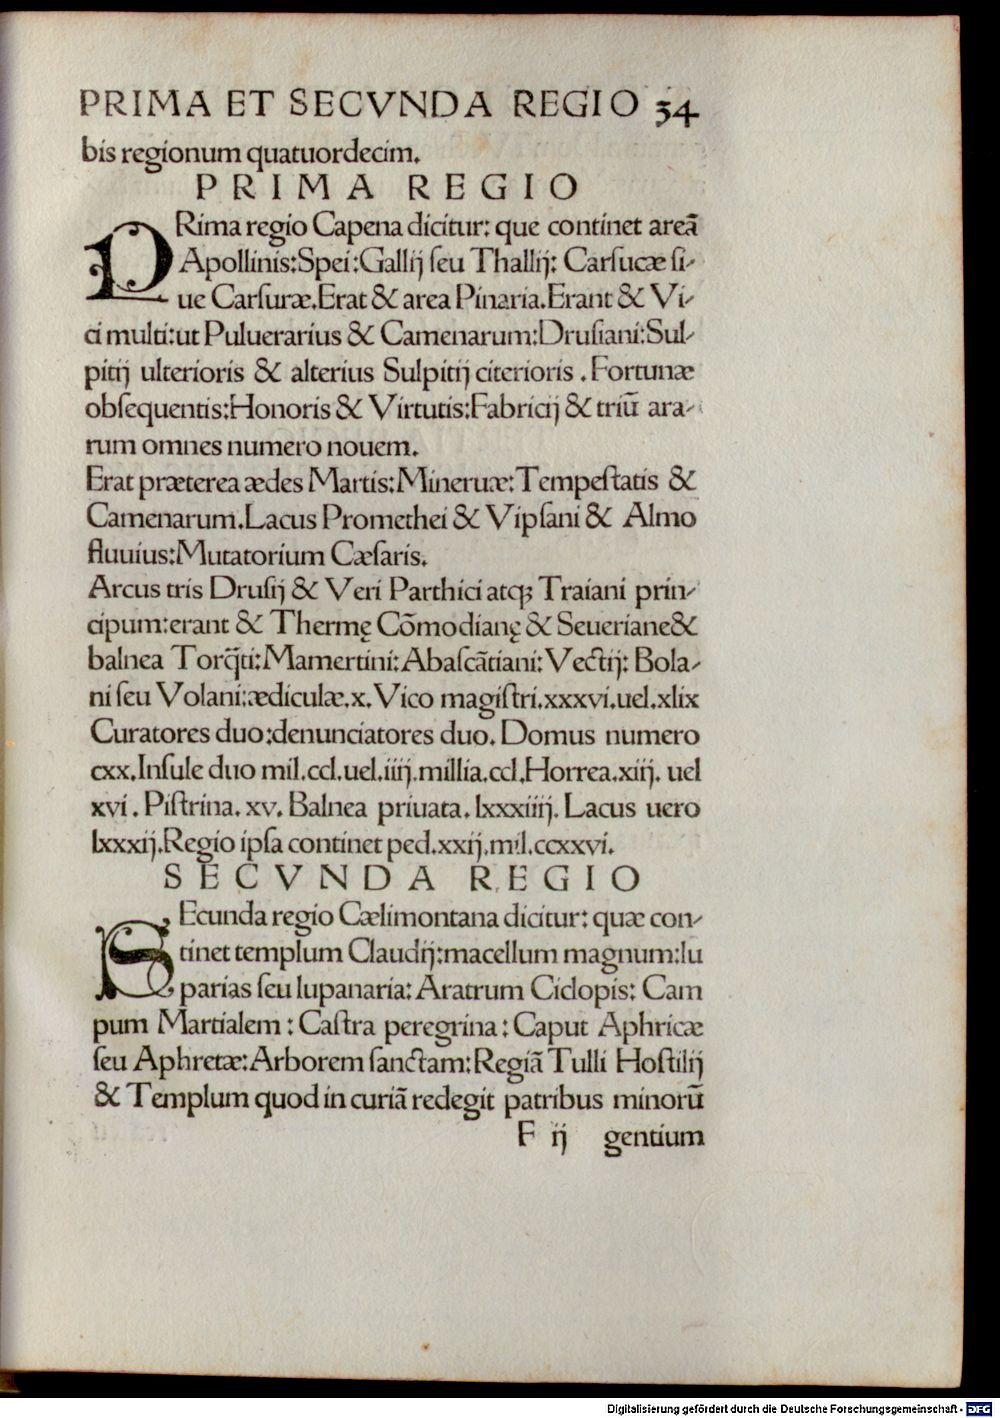 PRIMA ET SECVNDA REGIO 34
bis regionum quatuordecim.
PRIMA REGIO
PRima regio Capena dicitur: que continet areã
Apollinis:Spei:Gallij ſeu Thallij: Carſucæ ſi-
ue Carſuræ.Erat & area Pinaria.Erant & Vi-
ci multi:ut Puluerarius & Camenarum:Druſiani:Sul-
pitij ulterioris & alterius Sulpitij citerioris .Fortunæ
obſequentis:Honoris & Virtutis:Fabricij & triũ ara-
rum omnes numero nouem.
Erat præterea ædes Martis:Mineruæ:Tempeſtatis &
Camenarum.Lacus Promethei & Vipſani & Almo
fluuius:Mutatorium Cæſaris.
Arcus tris Druſij & Veri Parthici atq; Traiani prin-
cipum:erant & Thermę Cõmodianę & Seueriane&
balnea Torq̃ti:Mamertini:Abaſcãtiani:Vectij: Bola-
ni ſeu Volani:ædiculæ.x. Vico magiſtri.xxxvi.uel.xlix
Curatores duo:denunciatores duo. Domus numero
cxx.Inſule duo mil.ccl.uel.iiij.millia.ccl.Horrea.xiij. uel
xvi. Piſtrina. xv. Balnea priuata. lxxxiiij. Lacus uero
lxxxij.Regio ipſa continet ped.xxij.mil.ccxxvi.
SECVNDA REGIO
SEcunda regio Cælimontana dicitur: quæ con-
tinet templum Claudij:macellum magnum:lu
parias ſeu lupanaria: Aratrum Ciclopis: Cam
pum Martialem : Caſtra peregrina : Caput Aphricæ
ſeu Aphretæ:Arborem ſanctam:Regiã Tulli Hoſtilij
& Templum quod in curiã redegit patribus minorũ
F ij gentium
Digitalisierung gefördert durch die Deutsche Forschungsgemeinschaft - DFG